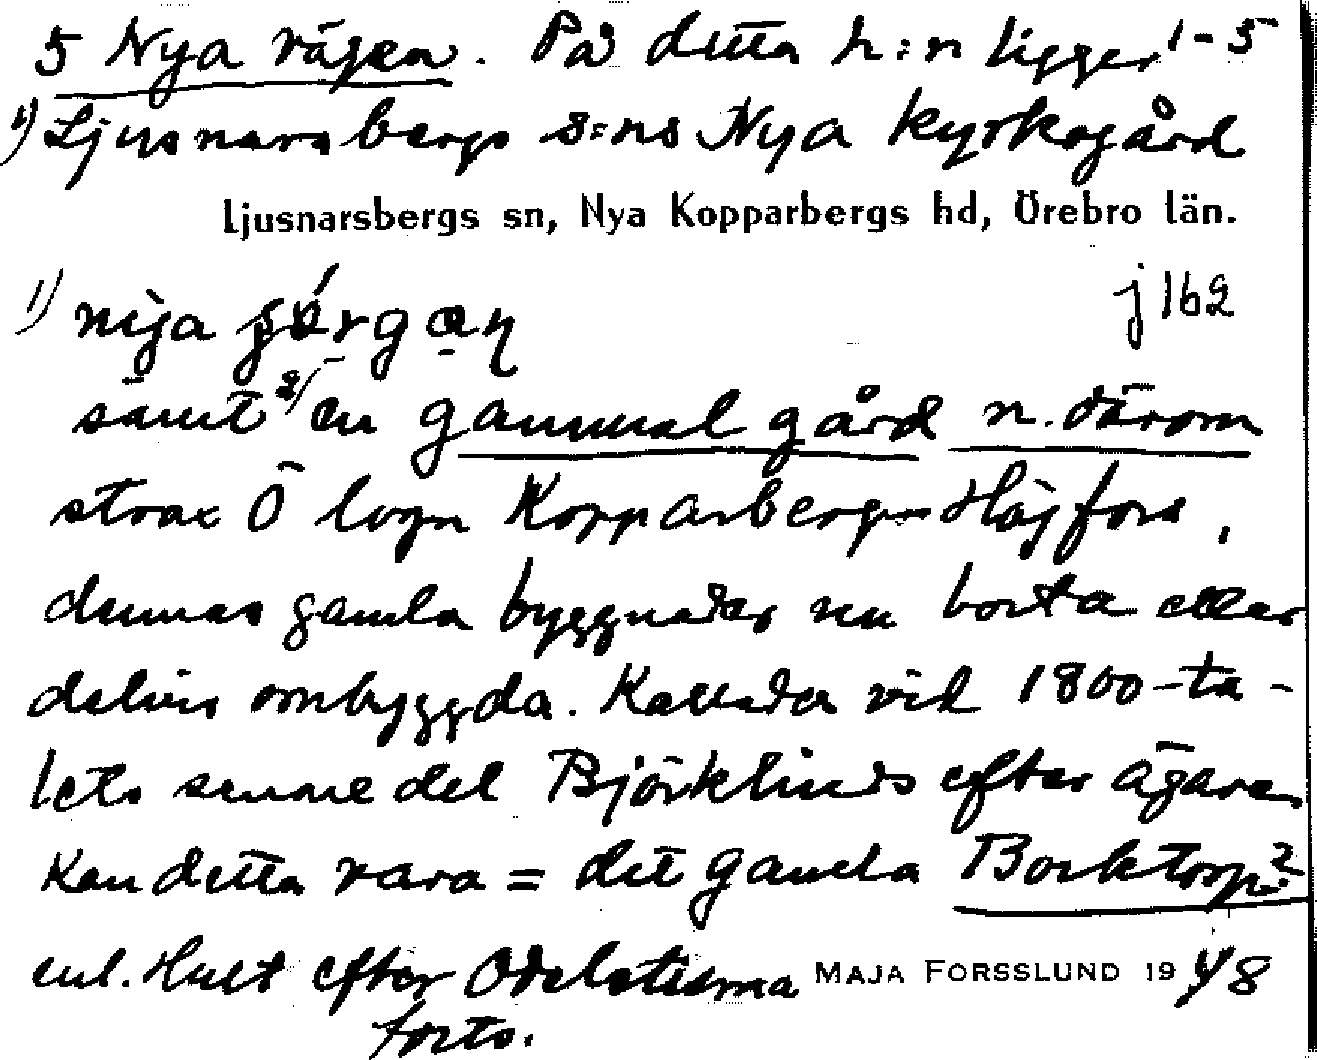 5 Nya vägen. På detta h:n ligger 1-5
1) Ljusnarsbergs s:ns Nya kyrkogård
Ljusnarsbergs sn, Nya Kopparbergs hd, Örebro län.
1) nija
j 162
sämt 2) en gammal gård n. därom
strax Ö logn Kopparberg-Höjfors,
dennas gamla byggnader nu borta eller
delvis ombyggda. Kallades vid 1800-ta-
lets senare del Björklinds efter ägare.
Kan detta vara = det gamla Bocktorp?
enl. Hult efter Odelstierna MAJA FORSSLUND 1948
forts.